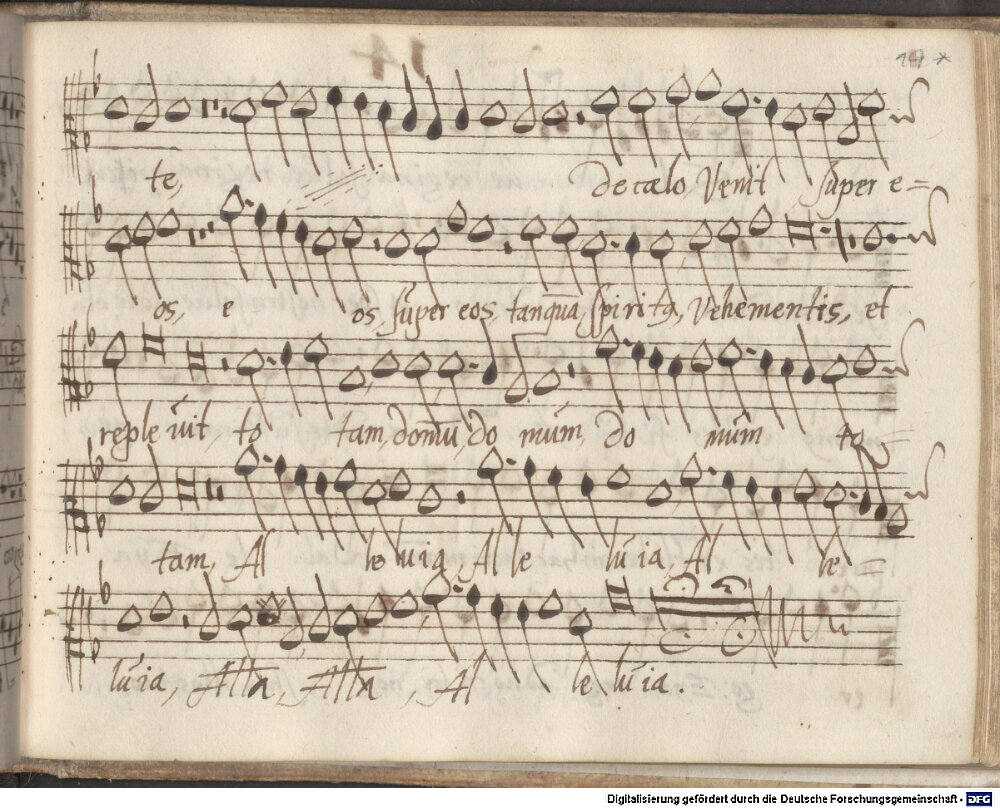 te, de cælo, Venit super e=
os, e os, super eos, tanquã, Vehementis, et
reple uit, to tam, domũ, do mum, do mum to=
tam, Al le luia, Al le luia Al le=
luia, Alla, Alla, Al le luia.
Digitalisierung gefördert durch die Deutsche Forschungsgemeinschaft - DFG